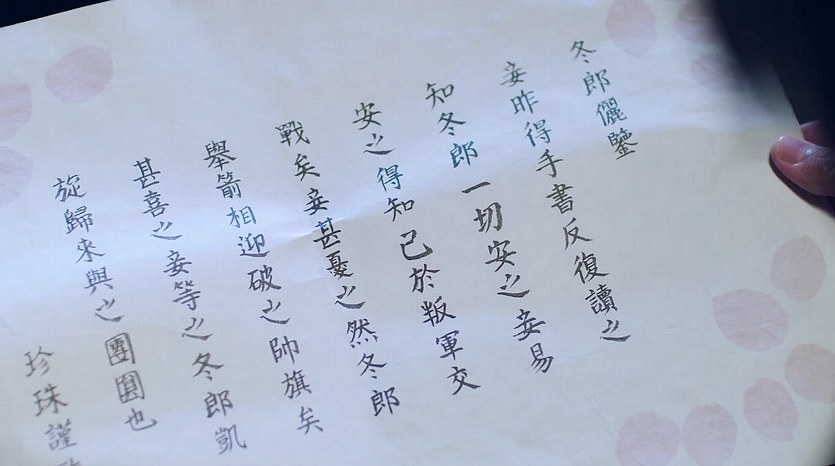 冬郎儷鑒
妾昨得手書反復讀之
知冬郎一切安之妾易
安之得知己於叛軍交
戰矣妾甚憂之然冬郎
舉箭相迎破之帥旗矣
甚喜之妾等之冬郎凱
旋歸來與之團圓也
珍珠謹